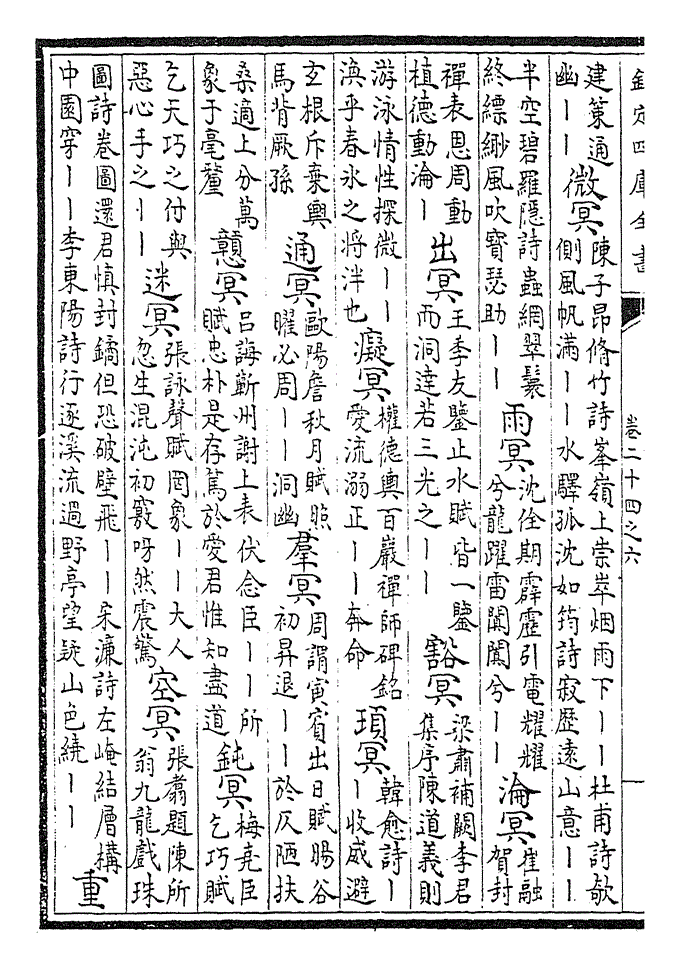 欽定四庫全書
卷二十四之六
建策通
幽丨丨
微冥
陳子昂脩竹詩峯嶺上崇崒烟雨下丨丨杜甫詩欹
側風帆滿丨丨水驛孤沈如筠詩寂歷遠山意丨丨
半空碧羅隱詩蟲網翠鬟
終縹緲風吹寳瑟助丨丨
雨冥
沈佺期霹靂引電耀耀
兮龍躍雷闐闐兮丨丨
淪冥
崔融
賀封
禪表恩周動
植德動淪丨
出冥
王季友鑒止水賦皆一鑒
而洞達若三光之丨丨
豁冥
梁肅補闕李君
集序陳道義則
游泳情性探微丨丨
渙乎春氷之將泮也
癡冥
權德輿百巖禪師碑銘
愛流溺正丨丨奔命
頊冥
韓愈詩丨
丨收威避
玄根斥棄輿
馬背厥孫
通冥
歐陽詹秋月賦照
曜必周丨丨洞幽
羣冥
周謂寅賓出日賦暘谷
初昇退丨丨於仄陋扶
桑適上分萬
象于毫釐
戇冥
吕誨蘄州謝上表伏念臣丨丨所
賦忠朴是存篤於愛君惟知盡道
鈍冥
梅堯臣
乞巧賦
乞天巧之付與
惡心手之丨丨
迷冥
張詠聲賦罔象丨丨大人
忽生混沌初竅呀然震驚
空冥
張翥題陳所
翁九龍戲珠
圖詩卷圖還君慎封鐍但恐破壁飛丨丨宋濂詩左崦結層構
中園穿丨丨李東陽詩行逐溪流過野亭望疑山色繞丨丨
重